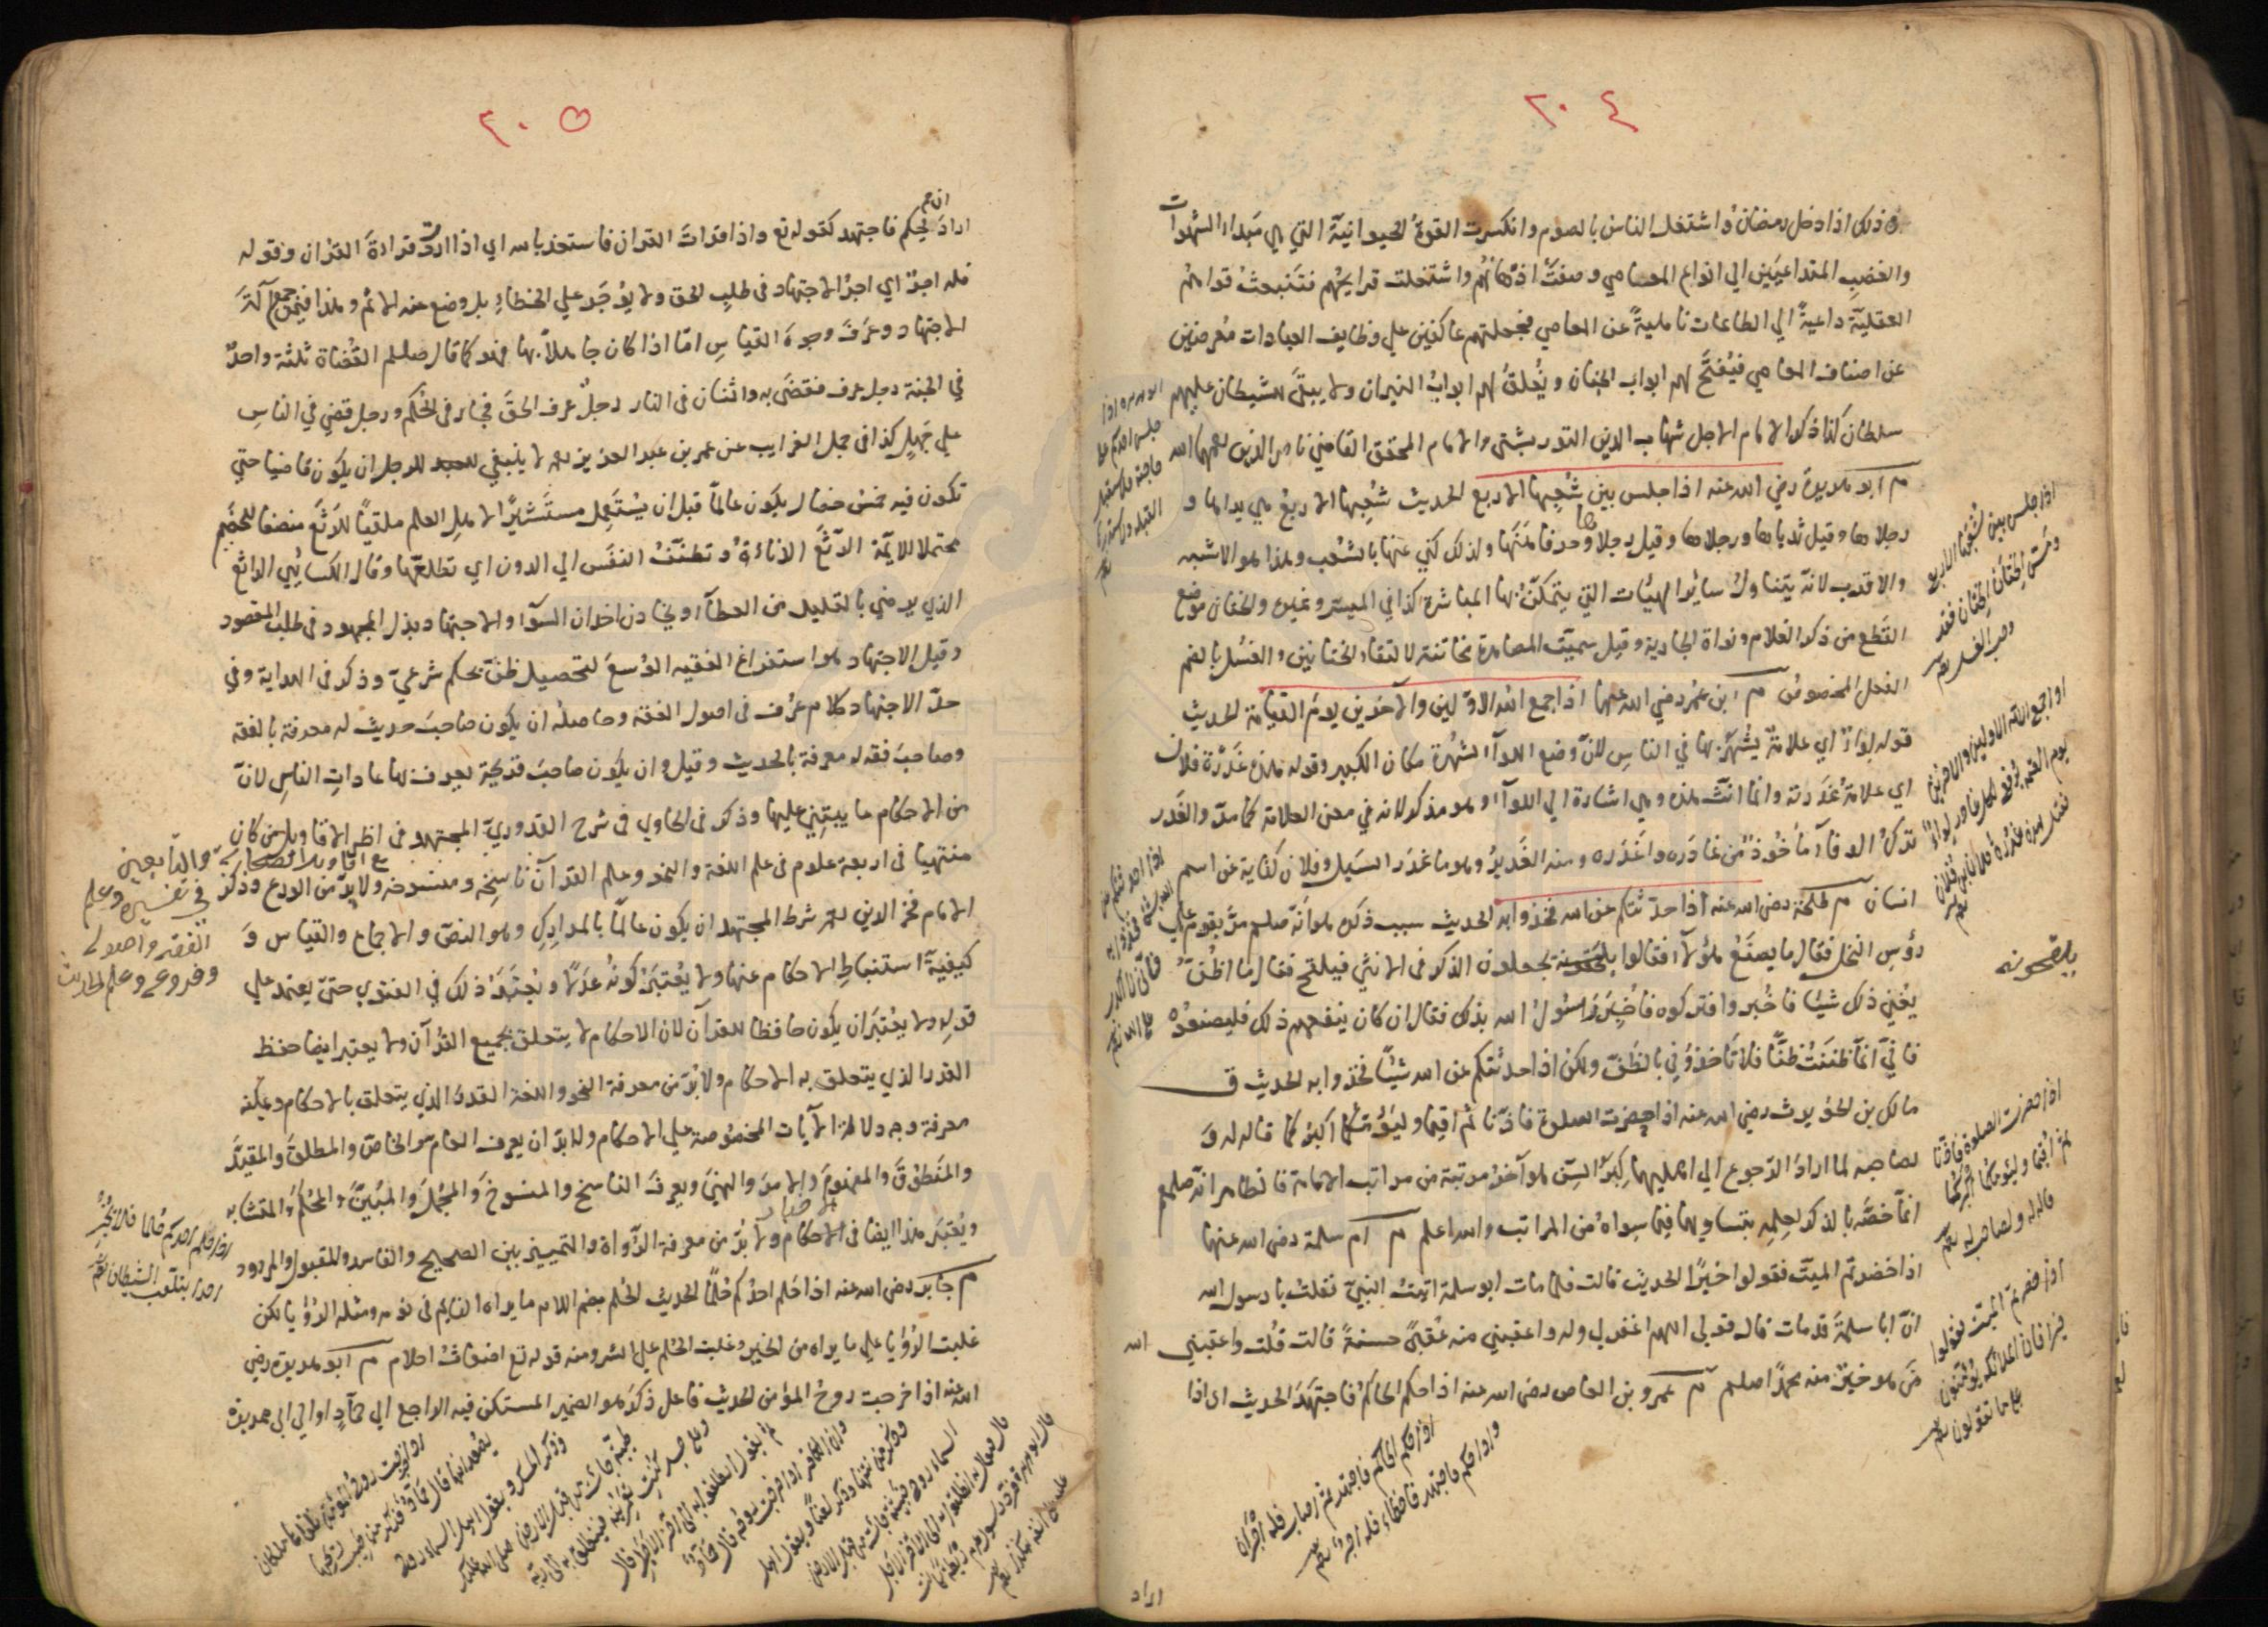 ٢٠٤
ذلك اذا دخل رمضان واشتغل الناس بالصوم وانكسرت القوة الحيوانية التي هي مبداء الشهوات
والغضب المتداعيين الي انواع المعاصي وصفت اذهانهم واشتغلت قرايحهم فتنبعث قواهم
العقلية داعية الي الطاعات ناهية عن المعاصي فجعلتهم عاكفين علي وظايف العبادات معرضين
عن اصناف المعاصي فيفتح لهم ابواب الجنان ويغلق لهم ابواب النيران ولا يبقى للشيطان عليهم
سلطان كذا ذكر الامام الاجل شهاب الدين التوربشتي والامام المحقق القاضي ناصر الدين رحمهما الله
م ابو هريرة رضي الله عنه اذا جلس بين شعبها الاربع الحديث شعبها الاربع هي يداها و
رجلاها وقيل ثدياها ورجلاها وقيل رجلاها وحرفا فرجها ولذلك كني عنها بالشعب وهذا هو الاشبه
والاقرب لانه يتناول سائر الهيئات التي يتمكن بها المباشرة كذا في الميسر وغيره والختان موضع
القطع من ذكر الغلام ونواة الجارية وقيل سميت المصاهرة مخاتنة لالتقاء الختانين والغسل بالضم
الفعل المخصوص م ابن عمر رضي الله عنهما اذا جمع الله الاولين والآخرين يوم القيامة الحديث
قوله لواء اي علامة يشهر بها في الناس لان وضع اللواء الشهرة مكان الكبير وقوله هذه غدرة فلان
اي علامة غدرته وانما انث هذه وهي اشارة الي اللواء وهو مذكر لانه في معنى العلامة كما مر والغدر
ترك الوفاء مأخوذ من غادره واغدره ومنه الغدير وهو ما غدر السيل وفلان كناية عن اسم
انسان م طلحة رضي الله عنه اذا حدثتكم عن الله فخذوا به الحديث سبب ذكره هو انه صلعم مر بقوم علي
رؤس النخل فقال ما يصنع هؤلاء فقالوا يلقحونه يجعلون الذكر في الانثي فيلقح فقال ما اظن
يغني ذلك شيئا فاخبروا فتركوه فاخبر رسول الله بذلك فقال ان كان ينفعهم ذلك فليصنعوه
فاني انما ظننت ظنا فلا تأخذوني بالظن ولكن اذا حدثتكم عن الله شيئا فخذوا به الحديث ق
مالك بن الحويرث رضي الله عنه اذا حضرت الصلوة فاذنا ثم اقيما وليؤمكما اكبركما قاله له و
لصاحبه لما ارادا الرجوع الي اهليهما كبر السن هو آخر مرتبة من مراتب الامامة فالظاهر انه صلعم
انما خصه بالذكر لعلمه بتساويهما فيما سواه من المراتب والله اعلم م ام سلمة رضي الله عنها
اذا حضرتم الميت فقولوا خيرا الحديث قالت فلما مات ابو سلمة اتيت النبي فقلت يا رسول الله
ان ابا سلمة قد مات قال قولي اللهم اغفر لي وله واعقبني منه عقبى حسنة قالت قلت واعقبني الله
من هو خير منه محمدا صلعم م عمرو بن العاص رضي الله عنه اذا حكم الحاكم فاجتهد الحديث اى اذا
اراد
اذا جلس بين شعبها الاربع
ومس الختان الختان فقد
وجب الغسل
اذا جمع الله الاولين والاخرين
يوم القيمة يرفع لكل غادر لواء
فقيل هذه غدرة فلان ابن فلان
يلقحونه
اذا حضرت الصلوة فاذنا
ثم اقيما وليؤمكما اكبركما
قاله له ولصاحب له
اذا حضرتم الميت فقولوا
خيرا فان الملائكة يؤمنون
على ما تقولون
اذا حكم الحاكم فاجتهد ثم اصاب فله اجران
واذا حكم فاجتهد فاخطاء فله اجر
٢٠٥
اراد ان يحكم فاجتهد كقوله تع واذا قرات القران فاستعذ بالله اي اذا اردت قراءة القران وقوله
فله اجر اي اجر الاجتهاد في طلب الحق ولا يؤجر علي الخطاء بل وضع عنه الاثم وهذا فيمن جمع آلة
الاجتهاد وعرف وجوه القياس اما اذا كان جاهلا بها فهو كما قال صلعم القضاة ثلثة واحد
في الجنة رجل عرف فقضى به واثنان في النار رجل عرف الحق فجار في الحكم ورجل قضي في الناس
علي جهل كذا في جمل الغرايب عن عمر بن عبد العزيز رحمه لا ينبغي للرجل ان يكون قاضيا حتي
تكون فيه خمس خصال يكون عالما قبل ان يستعمل مستشيرا لاهل العلم ملقيا للرثع منصفا للخصم
محتملا للايمة الرثع الدناءة وتطنف النفس الي الدون اي تطلعها وقال الكسائي الراثع
الذي يرضي بالقليل من العطاء ويخادن اخدان السوء والاجتهاد بذل المجهود في طلب المقصود
وقيل الاجتهاد هو استفراغ الفقيه الوسع لتحصيل ظن بحكم شرعي وذكر في الهداية وفي
حد الاجتهاد كلام عرف في اصول الفقه وحاصله ان يكون صاحب حديث له معرفة بالفقه
وصاحب فقه له معرفة بالحديث وقيل وان يكون صاحب قريحة يعرف بها عادات الناس لان
من الاحكام ما يبتني عليها وذكر في الحاوي في شرح القدوري المجتهد في اظهر الاقاويل من كان
منتهيا في اربعة علوم في علم اللغة والنحو وعلم القرآن ناسخه ومنسوخه ولا بد من الورع وذكر
الامام فخر الدين رحمه شرط المجتهد ان يكون عالما بالمدارك وهو النص والاجماع والقياس و
كيفية استنباط الاحكام عنها ولا يعتبر كونه عدلا ويعتبر ذلك في الفتوي حتى يعتمد علي
قوله ولا يعتبر ان يكون حافظا للقرآن لان الاحكام لا يتعلق بجميع القرآن ولا يعتبر ايضا حفظ
القدر الذي يتعلق به الاحكام ولا بد من معرفة النحو واللغة القدر الذي يتعلق بالاحكام ويمكنه
معرفة وجه دلالة الآيات المخصوصة علي الاحكام ولا بد ان يعرف العام والخاص والمطلق والمقيد
والمنطوق والمفهوم والامر والنهي ويعرف الناسخ والمنسوخ والمجمل والمبين والمحكم والمتشابه
ويعتبر هذا ايضا في الاحكام ولا بد من معرفة الرواة والتمييز بين الصحيح والفاسد والمقبول والمردود
م جابر رضي الله عنه اذا حلم احدكم حلما الحديث الحلم بضم اللام ما يراه النايم في نومه ومثله الرؤيا لكن
غلبت الرؤيا علي ما يراه من الخير وغلبت الحلم علي الشر ومنه قوله تع اضغاث احلام م ابو هريرة رضي
الله عنه اذا خرجت روح المؤمن الحديث فاعل ذكر هو الضمير المستكن فيه الراجع الي حماد او الي ابي هريرة
والتابعين
في تفسيره وعلم
الفقه واصوله
وفروعه وعلم الحديث
اذا حلم احدكم حلما فلا يخبر
احدا بتلعب الشيطان